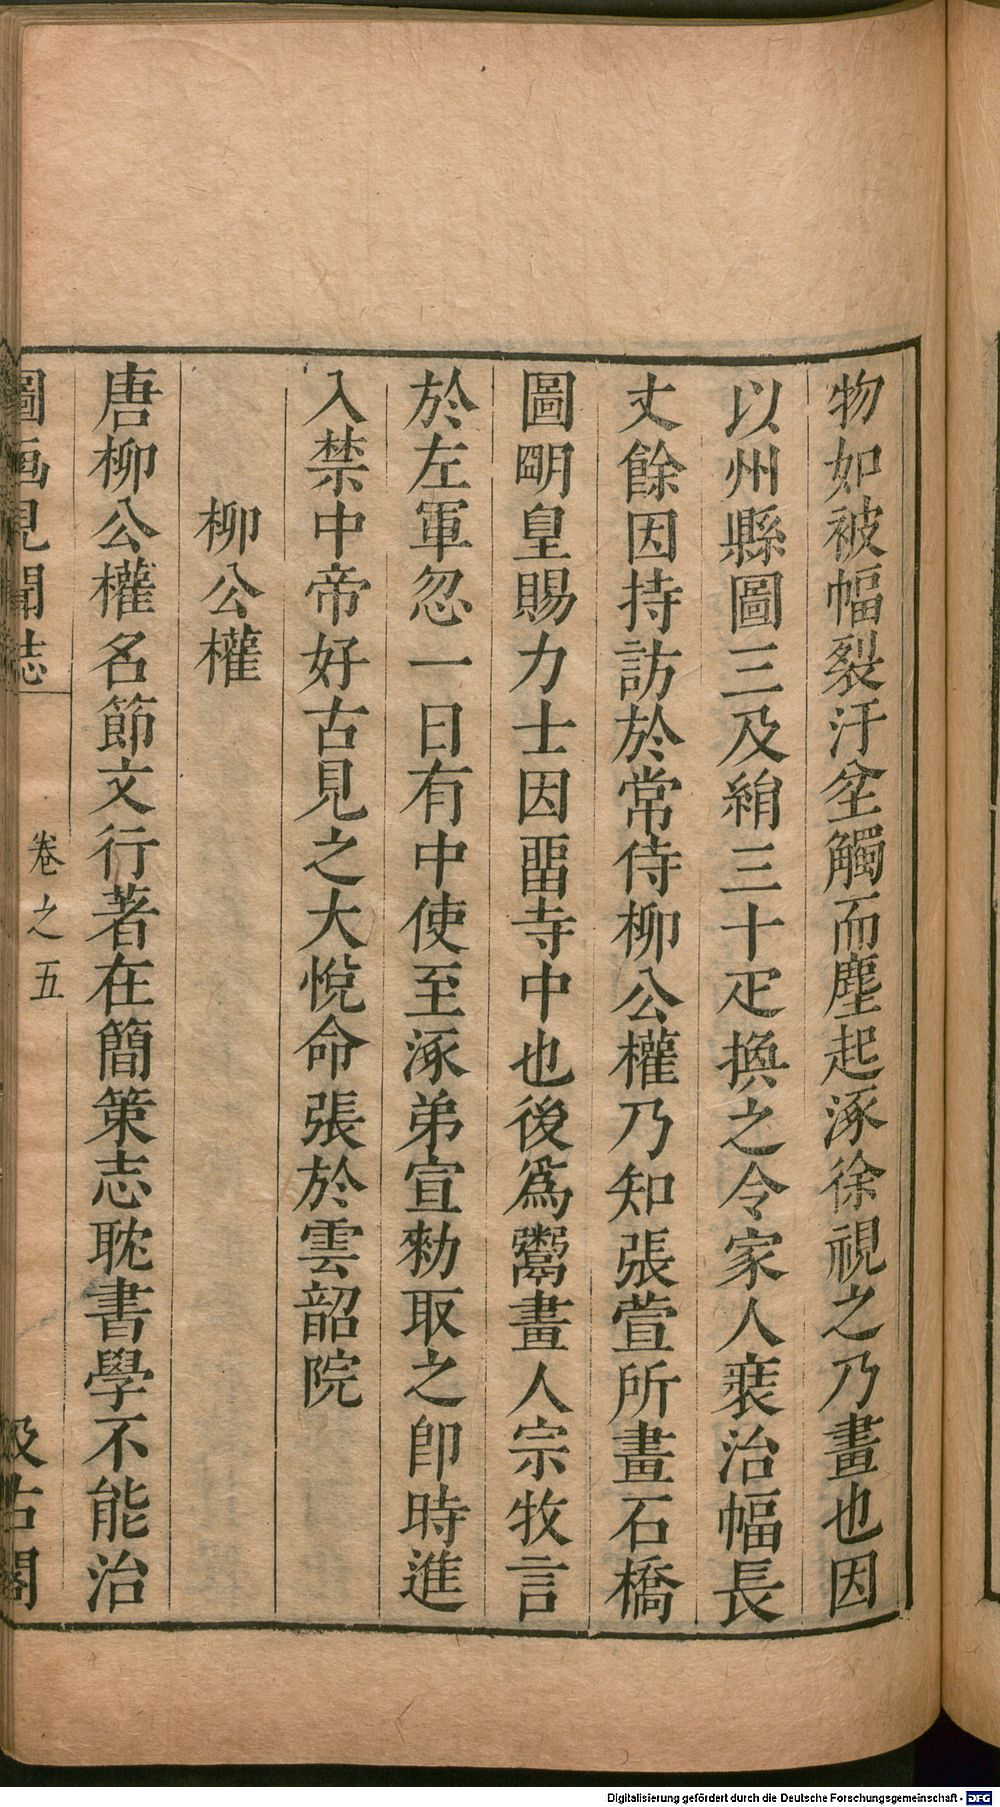 物如被幅裂汙坌觸而塵起涿徐視之乃畫也因
以州縣圖三及絹三十疋換之令家人裝治幅長
丈餘因持訪於常侍柳公權乃知張萱所畫石橋
圖明皇賜力士因畱寺中也後爲鬻畫人宗牧言
於左軍忽一日有中使至涿弟宣勑取之卽時進
入禁中帝好古見之大悅命張於雲韶院
柳公權
唐柳公權名節文行著在簡策志耽書學不能治
圖画見聞志 卷之五 汲古閣
Digitalisierung gefördert durch die Deutsche Forschungsgemeinschaft - DFG